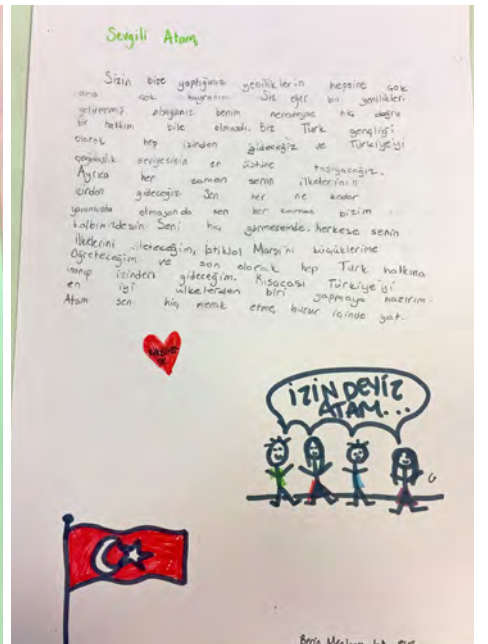 Sevgili Atam,
Sizin bize yaptığınız yeniliklerin hepsine çok
ama çok hayranım. Siz eğer bu yenilikleri
getirmemiş olsaydınız benim neredeyse hiç doğru
bir hakkım bile olmazdı. Biz Türk gençliği
olarak hep izinden gideceğiz ve Türkiye'yi
çağdaşlık seviyesinin en üstüne taşıyacağız.
Ayrıca her zaman senin ilkelerinin
ardından gideceğiz Sen her ne kadar
yanımızda olmasanda sen her zaman bizim
kalbimizdesin. Seni hiç görmesemde, herkese senin
ilkelerini ileteceğim, İstiklal Marşı'nı küçüklerime
Öğreteceğim ve son olarak hep Türk halkına
inanıp izinden gideceğim. Kısacası Türkiye'yi
en iyi ülkelerden biri yapmaya hazırım.
Atam sen hiç merak etme, huzur içinde yat.
İZİNDEYİZ
ATAM...